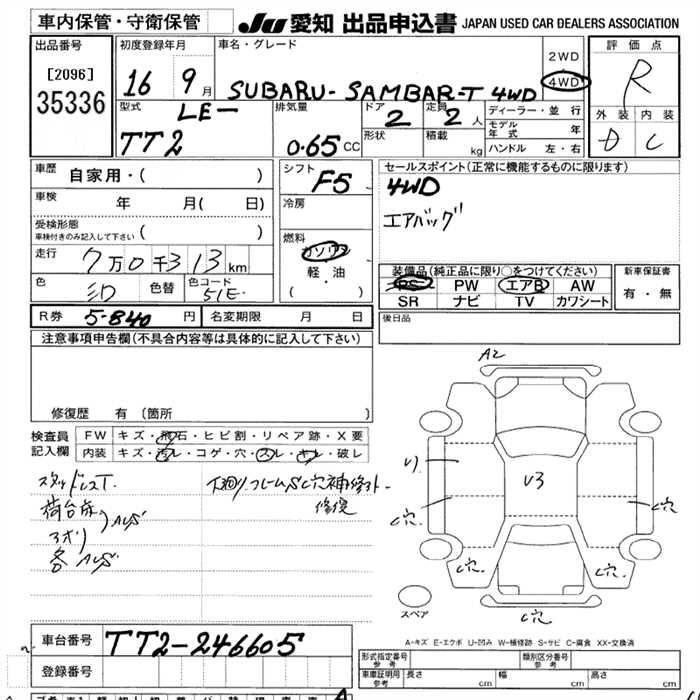 車内保管・守衛保管 JU 愛知 出品申込書 JAPAN USED CAR DEALERS ASSOCIATION
出品番号 初度登録年月 車名・グレード 2WD 評価点
[2096] 16 9月 SUBARU- SAMBAR-T 4WD 4WD R
35336 型式 LE- 排気量 ドア 定員 ディーラー・並行 外装 内装
TT2 0.65 CC 2 2人 モデル年式 年 D C
形状 積載 kg ハンドル 左・右
車歴 自家用・( ) シフト F5 セールスポイント(正常に機能するものに限ります)
車検 年 月( 日) 冷房 4WD
受検形態 エアバッグ
車検付きのみ記入して下さい ( )
走行 7万0千313km 燃料 ガソリン 装備品(純正品に限り○をつけてください) 新車保証書
色 色替 色コード 51E 軽・油 PS PW エアB AW 有・無
( ・ ) SR ナビ TV カワシート
R券 5-840 円 名変期限 月 日 後日品
注意事項申告欄(不具合内容等は具体的に記入して下さい)
A2
修復歴 有 (箇所 )
検査員 FW キズ・飛石・ヒビ割・リペア跡・X要
記入欄 内装 キズ・汚レ・コゲ・穴・スレ・キレ・破レ
U V3
スタッドレスT. 下廻りフレームS,C穴補修
荷台床 修復
アオリ A,U,S
各 A,U,S
C穴 C穴
C穴. C穴.
スペア C穴
A-キズ E-エクボ U-凹み W-補修跡 S-サビ C-腐食 XX-交換済
車台番号 TT2-246605
登録番号 形式指定番号 参考 類別区分番号 参考
車庫証明用 参考 長さ cm 幅 cm 高さ cm